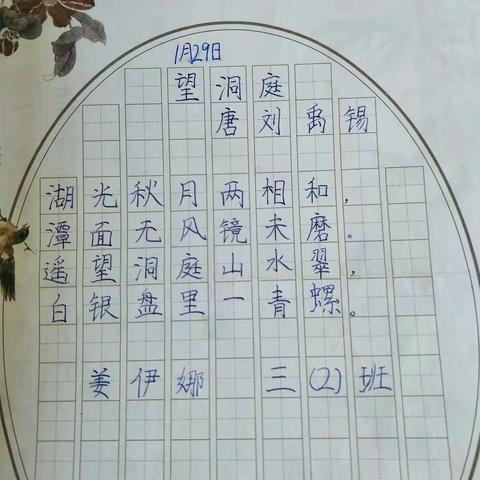 1月29日
望洞庭
唐 刘禹锡
湖光秋月两相和，
潭面无风镜未磨。
遥望洞庭山水翠，
白银盘里一青螺。
姜伊娜 三(2)班